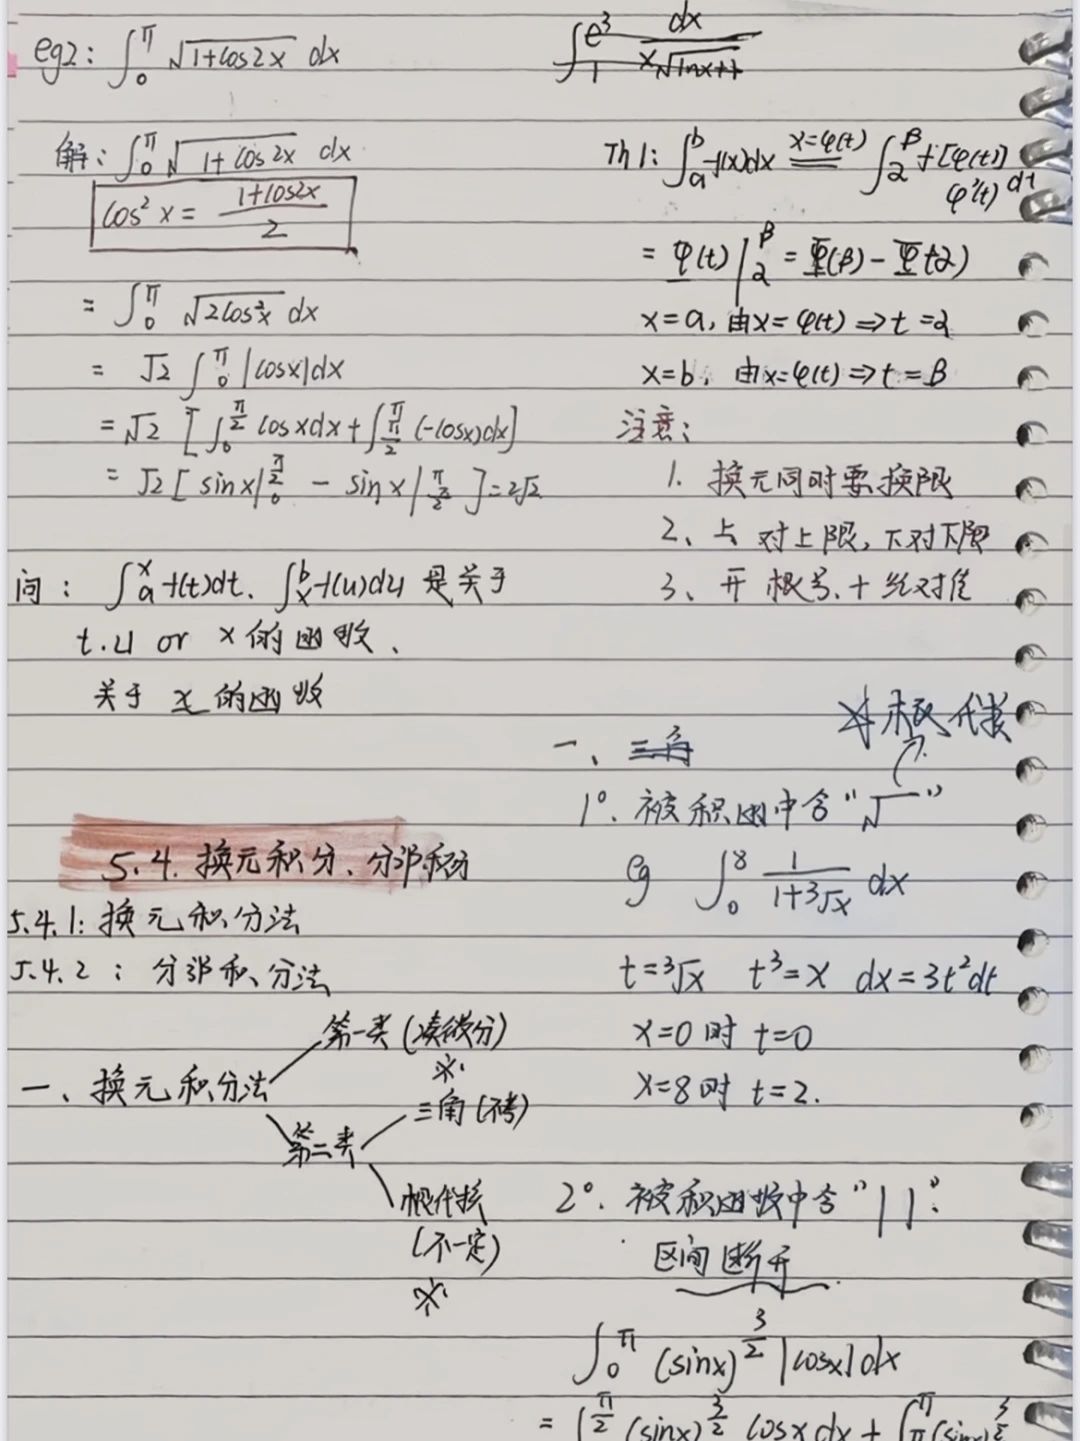 eg2: ∫₀^π √(1+cos2x) dx
解: ∫₀^π √(1+cos2x) dx
cos²x = (1+cos2x)/2
= ∫₀^π √(2cos²x) dx
= √2 ∫₀^π |cosx|dx
= √2 [∫₀^(π/2) cosxdx + ∫_(π/2)^π (-cosx)dx]
= √2 [sinx|₀^(π/2) - sinx|_(π/2)^π] = 2√2
问: ∫ₐˣ f(t)dt、∫ₓᵇ f(u)du 是关于
t.u or x 的函数、
关于 x 的函数
5.4. 换元积分、分部积分
5.4.1: 换元积分法
5.4.2: 分部积分法
一、换元积分法
第一类 (凑微分)
※.
第二类
三角 (不考)
根代换
(不一定)
※.
∫₁^(e³) dx/(x√(lnx+1))
Th1: ∫ₐᵇ f(x)dx x=φ(t) ∫₂^β f[φ(t)]
φ'(t) dt
= Φ(t)|₂^β = Φ(β) - Φ(2)
x=a, 由x=φ(t) ⇒ t=2
x=b, 由x=φ(t) ⇒ t=β
注意:
1. 换元同时要换限
2、上对上限, 下对下限
3、开根号、十绝对值
根代换
一、三角
1°. 被积函中含"√‾"
eg ∫₀⁸ 1/(1+³√x) dx
t=³√x t³=x dx=3t²dt
x=0时 t=0
x=8时 t=2.
2°. 被积函数中含"| |".
区间断开
∫₀^π (sinx)^(3/2) |cosx|dx
= ∫^(π/2) (sinx)^(3/2) cosxdx + ∫_π^π (sinx)^(3/2)